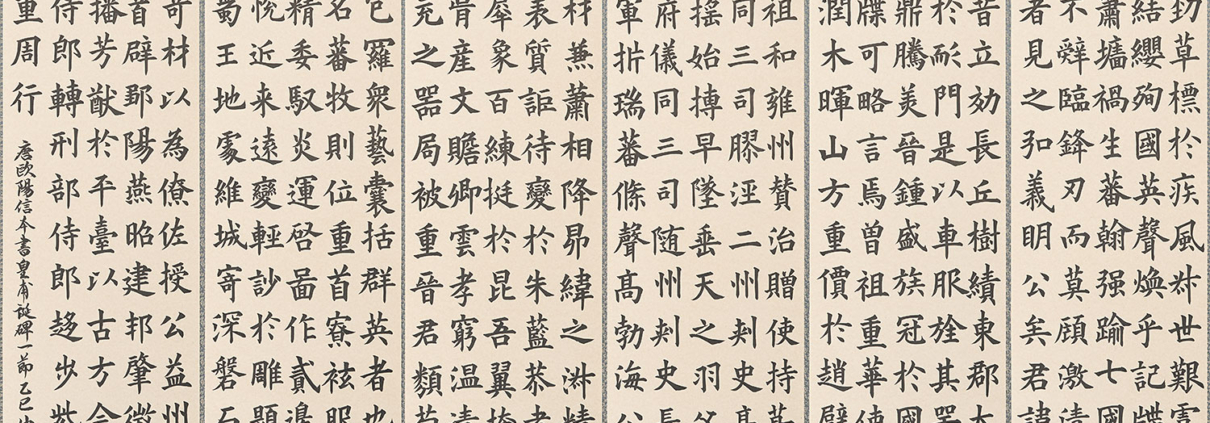 劲草標於疾風叔世艱虞
結纓殉國英聲煥乎記牒
肅墻禍生蕃翰强踰七國
不辤臨鋒刃而莫顧激清
者見之弘義明公矣君諱
昔立効長丘樹績東郡太
於耏門是以車服旌其器
鼎騰羙晉鍾盛族冠於國
牒可略言焉曾祖重華使
潤木暉山方重價於趙璧
祖和雍州贊治贈使持莭
同三司膠涇二州刾史高
揺始摶早墜垂天之羽父
府儀同三司随州刾史長
軍斾瑞蕃條聲髙勃海公
材兼蕭相降昴緯之淑精
表質詎待變於朱藍恭孝
犀象百練挺於昆吾翼
胄産文贍卿雲孝窮温清
充之噐局被重晉君類荀
包羅衆藝囊括群英者也
名蕃牧則位重首寮袨服
精委馭炎運啓啚作貳邊
悦近来逺變輕訬於雕題
蜀王地處維城寄深磐石
奇材以為僚佐授公益州
首辟鄒陽燕昭建邦肇徵
播芳猷於平臺以古方今
侍郎轉刑部侍郎趍步紫
重周行
唐歐陽信本書皇甫誕碑一節乙巳